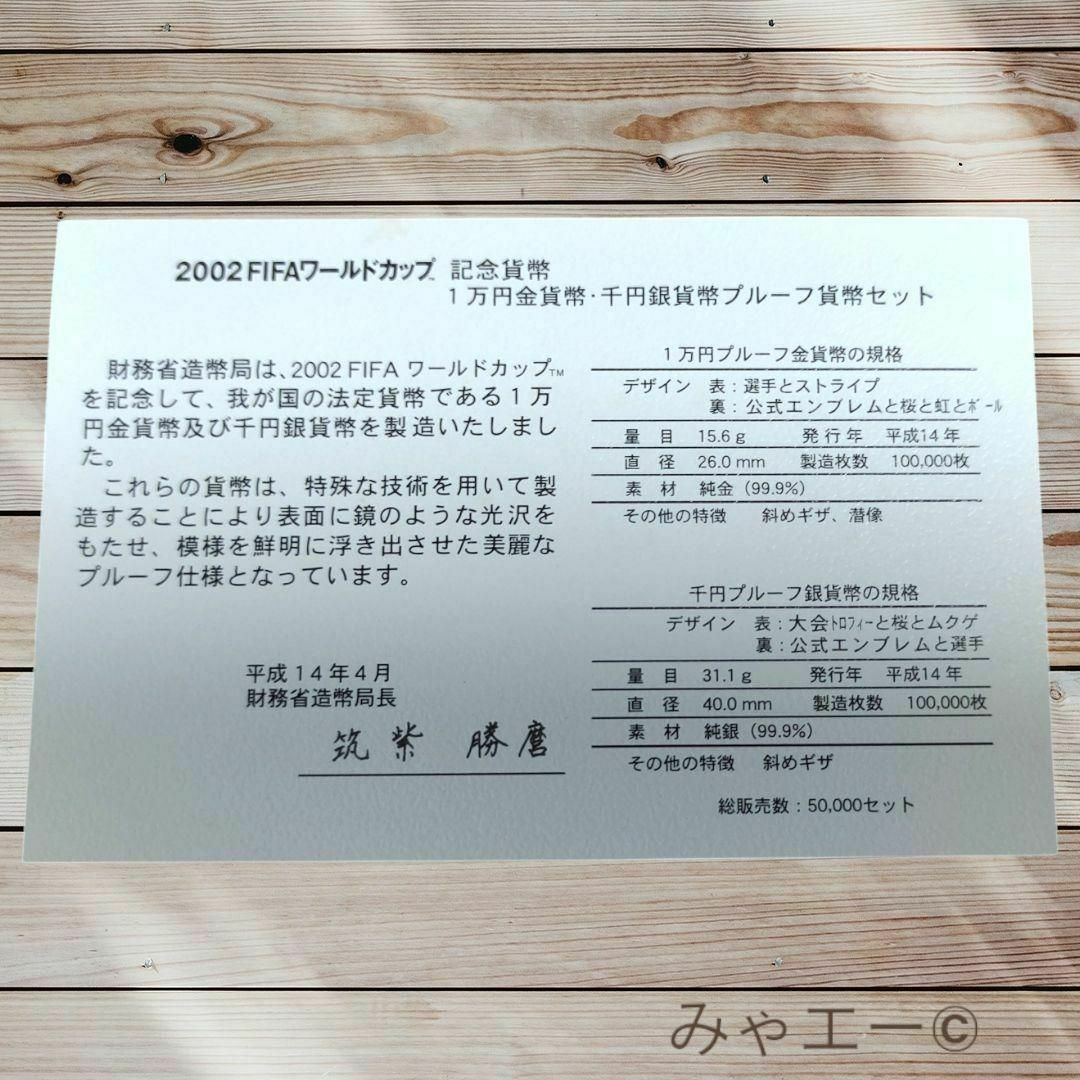 2002 FIFAワールドカップ™ 記念貨幣
1万円金貨幣・千円銀貨幣プルーフ貨幣セット
財務省造幣局は、2002 FIFA ワールドカップ™
を記念して、我が国の法定貨幣である1万
円金貨幣及び千円銀貨幣を製造いたしまし
た。
これらの貨幣は、特殊な技術を用いて製
造することにより表面に鏡のような光沢を
もたせ、模様を鮮明に浮き出させた美麗な
プルーフ仕様となっています。
平成14年4月
財務省造幣局長
筑紫 勝麿
1万円プルーフ金貨幣の規格
デザイン 表：選手とストライプ
裏：公式エンブレムと桜と虹とﾎﾞｰﾙ
量目 15.6g 発行年 平成14年
直径 26.0mm 製造枚数 100,000枚
素材 純金（99.9%）
その他の特徴 斜めギザ、潜像
千円プルーフ銀貨幣の規格
デザイン 表：大会ﾄﾛﾌｨｰと桜とムクゲ
裏：公式エンブレムと選手
量目 31.1g 発行年 平成14年
直径 40.0mm 製造枚数 100,000枚
素材 純銀（99.9%）
その他の特徴 斜めギザ
総販売数：50,000セット
みゃエー©